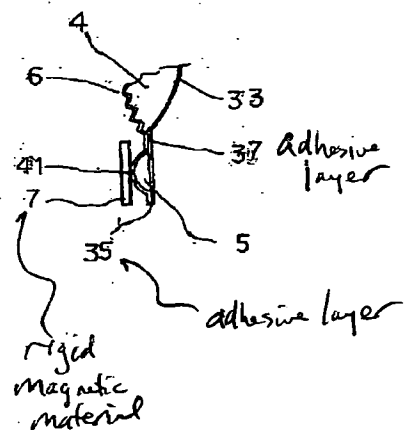 4
6
33
37 adhesive
layer
41
7
35
5
adhesive layer
rigid
magnetic
material